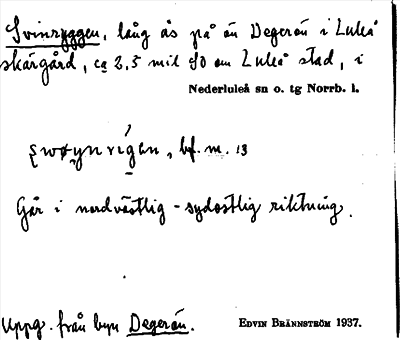 Svinryggen, lång ås på ön Degerön i Luleå
skärgård, ca 2,5 mil SO om Luleå stad, i
Nederluleå sn o. tg Norrb. l.
bf. m. 13
Går i nordvästlig - sydostlig riktning.
Uppg. från byn Degerön. EDVIN BRÄNNSTRÖM 1937.